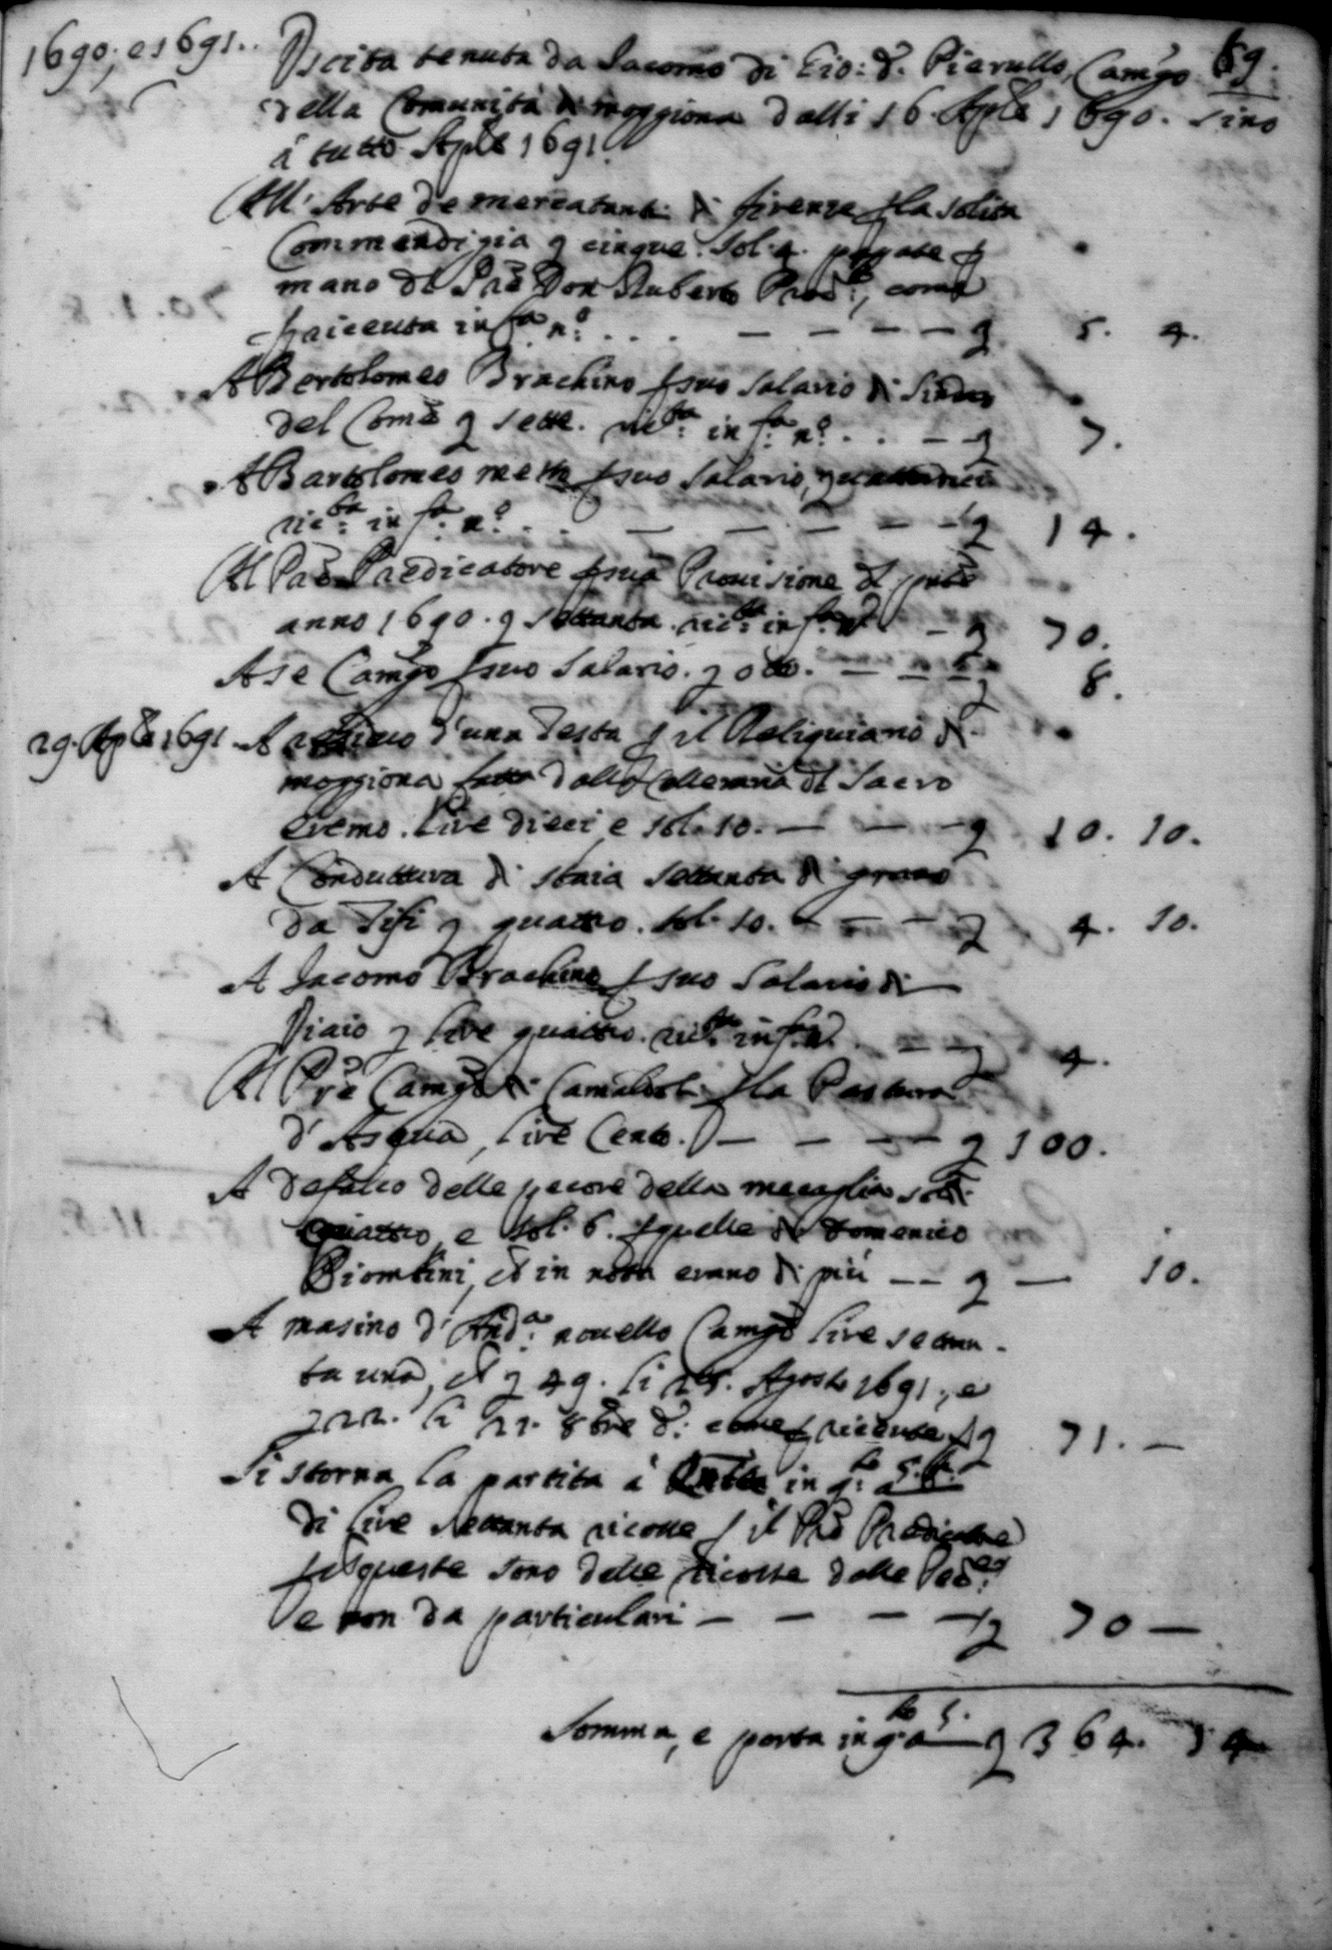 1690, e 1691.. Uscita tenuta da Jacomo di Gio: d. Pierullo Camgo 69.
della Comunità di moggiona dalli 16. Aple 1690. sino
à tutto Aple 1691.
All' Arte de mercatanti di firenze p la solita
Commendigia q cinque. sol. 4. pagate p
mano dl Pre Don Ruberto, come
p riceuta in fa n.o . . . — — — — q 5. 4.
A Bertolomeo Brachino p suo salario di
del Come q sette. rict.a in f.a n.o . . — q 7.
A Bartolomeo p suo salario, quattordici
ric.ta in f.a n.o . . — — — — q 14.
Al Pre Predicatore p sua Prouisione dl
anno 1690. q settanta. ric.ta in f.a n.o — q 70.
A se Camgo p suo salario. q otto. — — — q 8.
29. Aple 1691 A d'una Testa p il Reliquiario di
moggiona fatta dalla dl Sacro
Eremo. lire dieci, e sol. 10. — — — q 10. 10.
A Conduttura di staia settanta di grano
da q quattro. sol. 10. — — — q 4. 10.
A Jacomo Brachino p suo salario di
Viaio q lire quattro. ric.ta in f.a n.o — — q 4.
Al Pre Camgo di Camaldoli p la Pastura
d'Asqua, lire Cento. — — — — q 100.
A defalco delle pecore della
quattro e sol. 6. p quelle di Domenico
Piombini, ch in nota erano di più — — q — 10.
A masino d'And.a nouello Camgo lire settan-
ta una, cioè q 49. li 25. Agosto 1691, e
q 22. li 8bre d. come p riceute q 71. —
Si storna la partita à in q.to a
di lire settanta ricolte p il Pre Predicatore
queste sono dette ricolte dalle
e non da particulari — — — — q 70 —
Somma, e porta in q.to a 5. q 364. 14